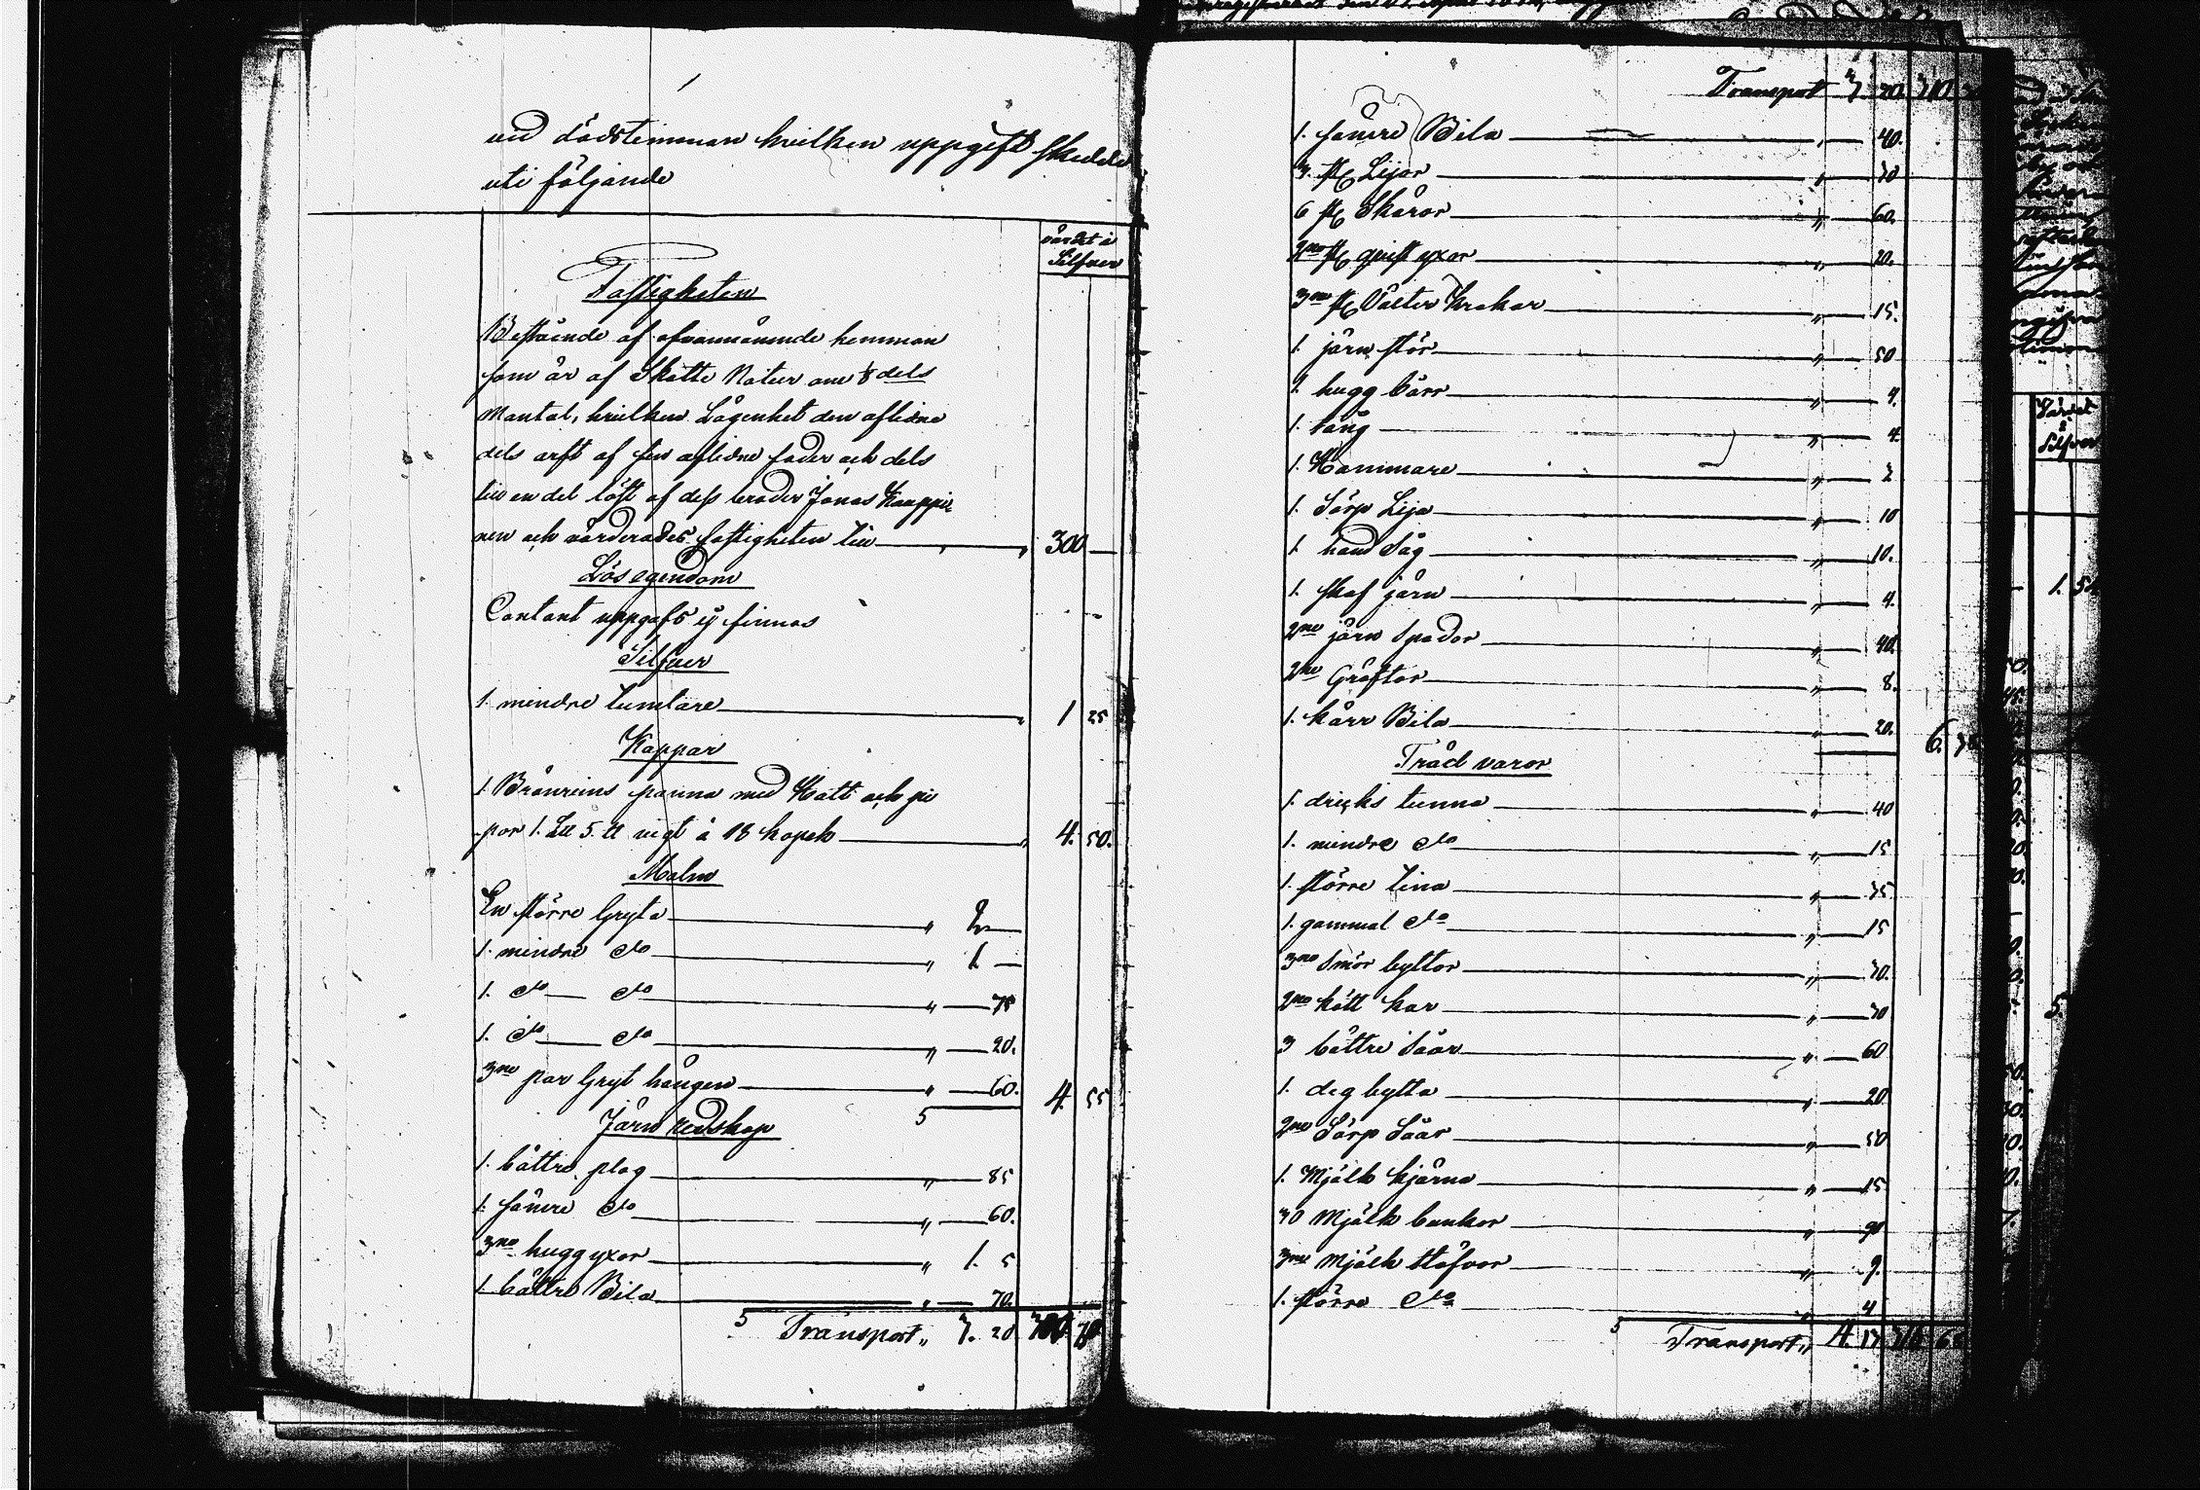 vid dödstimman hvilken uppgift skedde
uti följande
värdet i
Silfver
Fastigheten
Bestående af ofvannämnde hemman
som är af Skatte Natur om 1/8 dels
Mantal, hvilken Lägenhet den aflidne
dels ärft af sin aflidne fader och dels
till en del löst af dess broder Jonas Kauppi-
nen och värderades fastigheten till " 300 —
Lös egendom
Contant uppgafs ej finnas -
Silfver
1. mindre tumlare " 1 25
Koppar
1. Bränvins panna med Hatt och pi-
por 1. L℔ 5. ℔ vigt à 18 kopek " 4. 50.
Malm
En större Gryta " 2 —
1. mindre do " 1 —
1. do — do " — 75
1. do — do " — 20.
3ne par Gryt hängen " — 60. 4. 55
5
Järn redskap
1. bättre plog " — 85
1. sämre do " — 60.
3ne huggyxor " 1. 5
1. bättre Bila " — 70.
5 Transport " 3. 20 310 30
Transport 3. 20. 310 30
1. sämre Bila " — 40.
3. st Lijar " — 30
6 st Skäror " — 60.
2ne st qvist yxor " — 20.
3ne st Välter krokar " — 15.
1. järn stör " — 50
1. hugg bärr " — 4.
1. tång " — 4.
1. Hammare " — 2
1. Sörp Lija " — 10
1. hand Såg " — 10.
1. skaf järn " — 4.
2ne järn Spador " — 40.
2ne Gräftor " — 8.
1. kärr Bila " — 20. 6.
Träd varor
1. dricks tunna " — 40
1. mindre do " — 15
1. större tina " — 35
1. gammal do " — 15
3ne Smör byttor " — 30.
2ne kött kar " — 30
3 bättre Såar " — 60
1. deg bytta " — 20
2ne Sörp Såar " — 50
1. Mjölk kjärna " — 15
30 Mjölk bunkar " — 90
3ne mjölk stäfvor " — 9.
1. större do " — 4
5 Transport " 4. 13 316
Värdet
i
Silfver
1. 50
5.